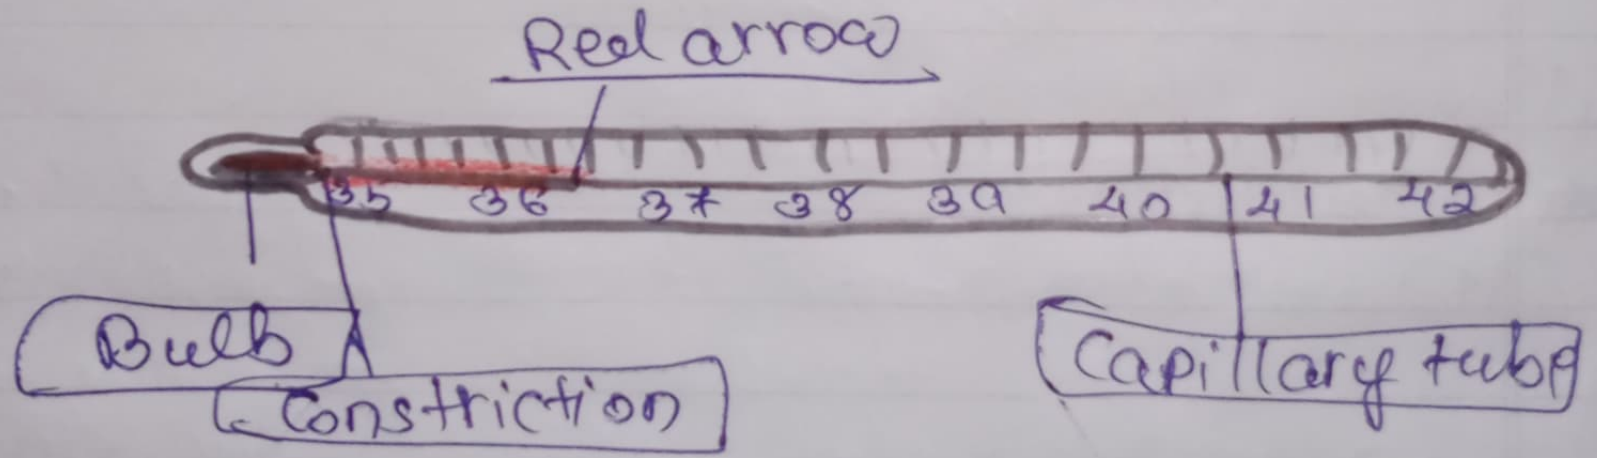 Red arrow
35 36 37 38 39 40 41 42
Bulb
Constriction
Capillary tube